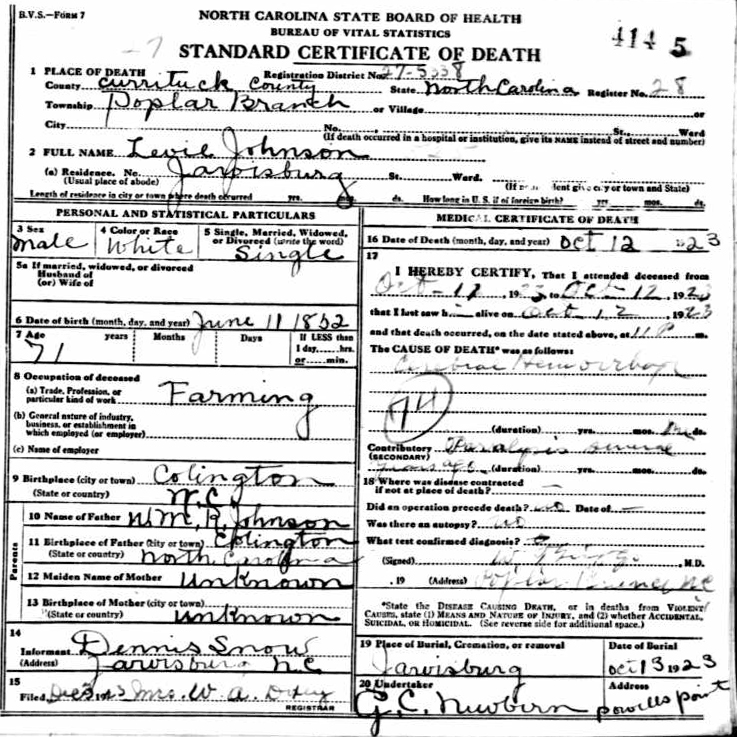 B.V.S.—FORM 7
NORTH CAROLINA STATE BOARD OF HEALTH
BUREAU OF VITAL STATISTICS
STANDARD CERTIFICATE OF DEATH
414 5
—7
1 PLACE OF DEATH Registration District No. 27-5338
County Currituck County State North Carolina Register No. 28
Township Poplar Branch or Village or
City No. St., Ward
(If death occurred in a hospital or institution, give its NAME instead of street and number)
2 FULL NAME Levie Johnson
(a) Residence. No. Jarvisburg St. Ward.
(Usual place of abode) (If give city or town and State)
Length of residence in city or town where death occurred yrs. ds. How long in U. S. if of foreign birth? yrs. mos. ds.
PERSONAL AND STATISTICAL PARTICULARS
3 Sex male
4 Color or Race White
5 Single, Married, Widowed, or Divorced (write the word) Single
5a If married, widowed, or divorced
Husband of
(or) Wife of
6 Date of birth (month, day, and year) June 11 1852
7 Age 71 years Months Days If LESS than
1 day,....hrs.
or....min.
8 Occupation of deceased
(a) Trade, Profession, or
particular kind of work Farming
(b) General nature of industry,
business, or establishment in
which employed (or employer)
(c) Name of employer
9 Birthplace (city or town) Colington
(State or country) N.C.
Parents
10 Name of Father Wm. R. Johnson
11 Birthplace of Father (city or town) Colington
(State or country) North Carolina
12 Maiden Name of Mother Unknown
13 Birthplace of Mother (city or town)
(State or country) Unknown
14
Informant Dennis Snow
(Address) Jarvisburg N.C.
15
Filed Mrs. W. A.
REGISTRAR
MEDICAL CERTIFICATE OF DEATH
16 Date of Death (month, day, and year) Oct 12 23
17
I HEREBY CERTIFY, That I attended deceased from
Oct-12, 1923, to Oct 12, 1923
that I last saw h alive on Oct 12, 1923
and that death occurred, on the date stated above, at 11 P m.
The CAUSE OF DEATH* was as follows:
Cerebral Hemorrhage
74
(duration) yrs. mos. ds.
Contributory Paralysis several
(SECONDARY)
years ago (duration) yrs. mos. ds.
18 Where was disease contracted
if not at place of death? —
Did an operation precede death? no Date of —
Was there an autopsy? no
What test confirmed diagnosis?
(Signed) W. M.D.
, 19 (Address) Poplar Branch NC
*State the DISEASE CAUSING DEATH, or in deaths from VIOLENT
CAUSES, state (1) MEANS AND NATURE OF INJURY, and (2) whether ACCIDENTAL,
SUICIDAL, OR HOMICIDAL. (See reverse side for additional space.)
19 Place of Burial, Cremation, or removal Date of Burial
Jarvisburg Oct 13 1923
20 Undertaker Address
G. C. Newbern Powells Point